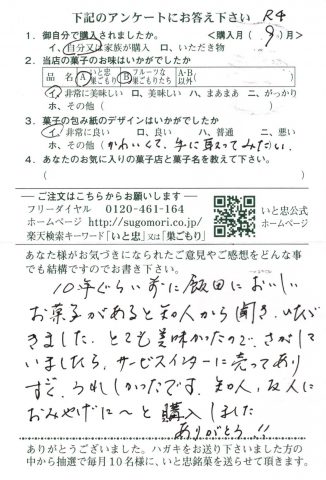 下記のアンケートにお答え下さい R4
1. 御自分で購入されましたか。 <購入月( 9 )月>
イ、自分又は家族が購入 ロ、いただき物
2. 当店の菓子のお味はいかがでしたか
品名 Aいと忠巣ごもり Bフルーツな巣ごもりたち A・B以外
イ、非常に美味しい ロ、美味しい ハ、まあまあ ニ、がっかり
ホ、その他( )
3. 菓子の包み紙のデザインはいかがでしたか
イ、非常に良い ロ、良い ハ、普通 ニ、悪い
ホ、その他(かわいくて、手に取ってみたい)
4. あなたのお気に入りの菓子店と菓子名を教えて下さい。
( )
ご注文はこちらからお願いします
フリーダイヤル 0120-461-164
ホームページ http://sugomori.co.jp/
楽天検索キーワード「いと忠」又は「巣ごもり」
いと忠公式
ホームページ
あなた様がお気づきになられたご意見やご感想をどんな事
でも結構ですのでお書き下さい。
10年ぐらい前に飯田においしい
お菓子があると知人から聞き、いただ
きました。とても美味かったので、さがして
いましたら、サービスインターに売ってあり
すごくうれしかったです。知人、友人に
おみやげにへと購入しました
ありがとう!!
ありがとうございました。ハガキをお送り下さいました方の
中から抽選で毎月10名様に、いと忠銘菓を送らせて頂きます。